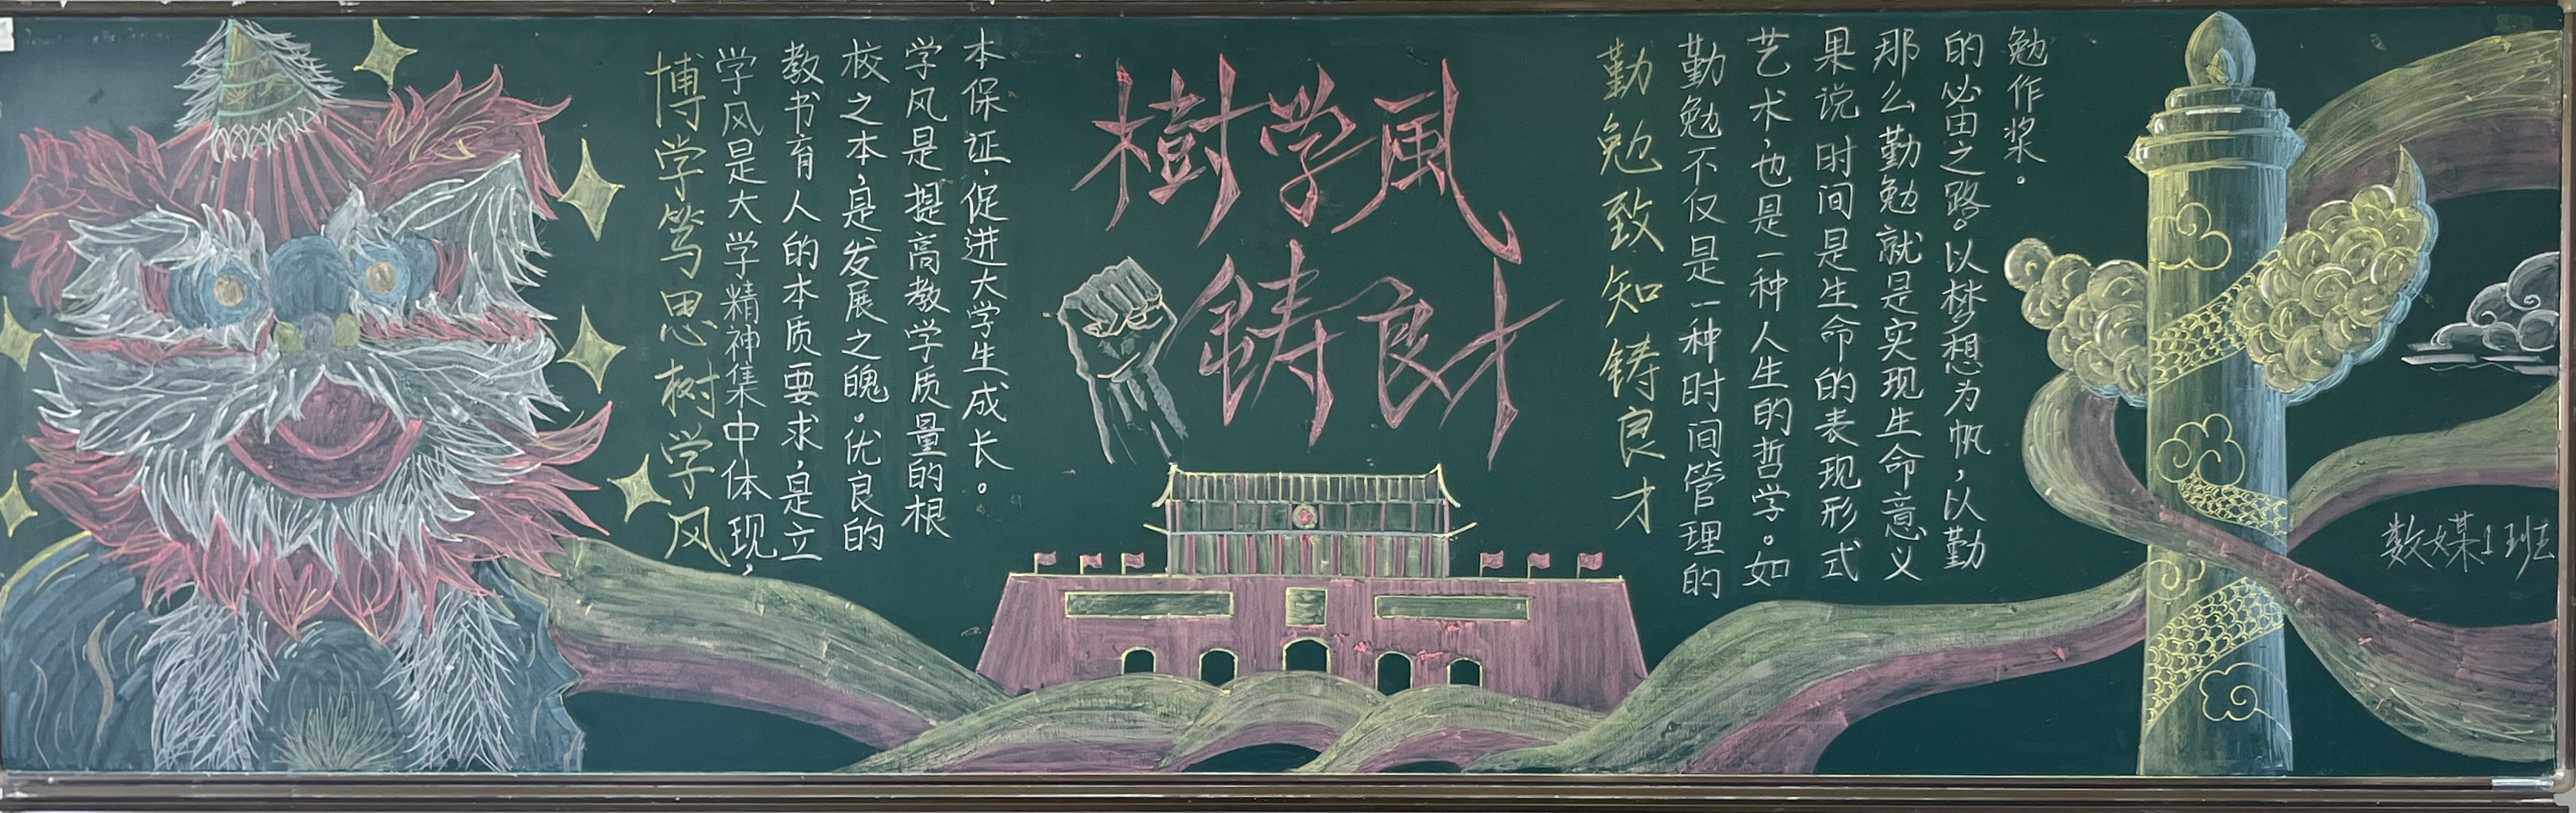 博学笃思树学风
学风是大学精神集中体现，
教书育人的本质要求，是立
校之本，是发展之魄。优良的
学风是提高教学质量的根
本保证，促进大学生成长。
樹学風
鋳良才
勤勉致知铸良才
勤勉不仅是一种时间管理的
艺术，也是一种人生的哲学。如
果说时间是生命的表现形式
那么勤勉就是实现生命意义
的必由之路。以梦想为帆，以勤
勉作桨。
数媒1班